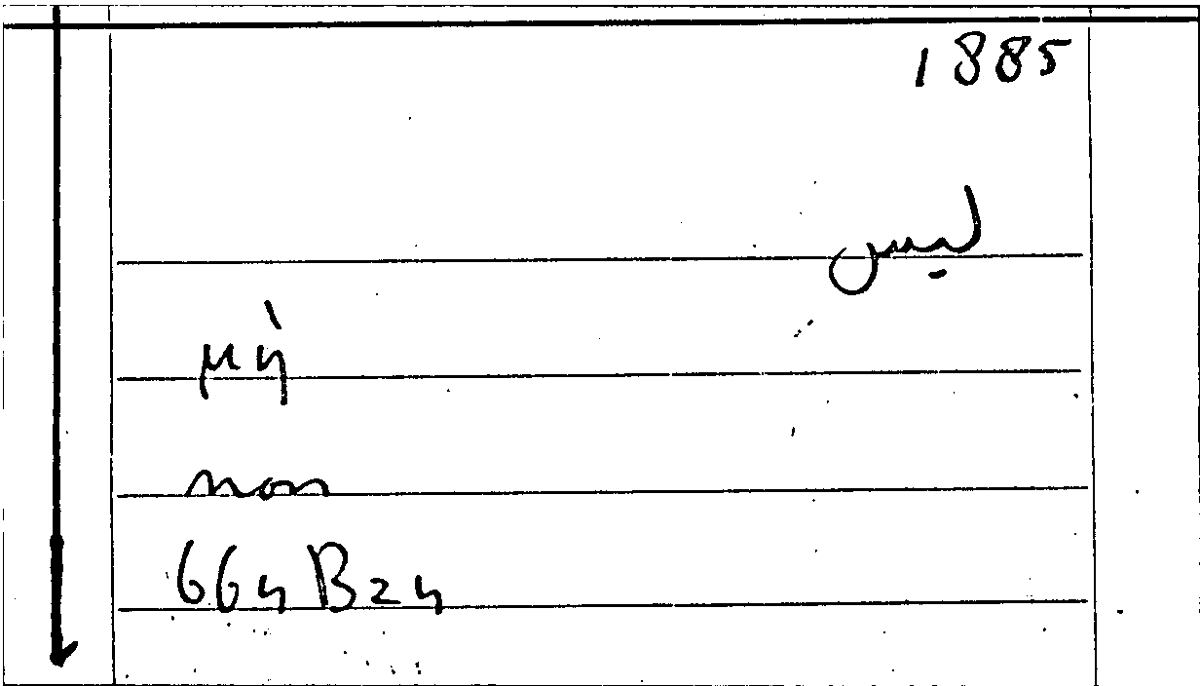 1885
ليس
μὴ
non
664B24